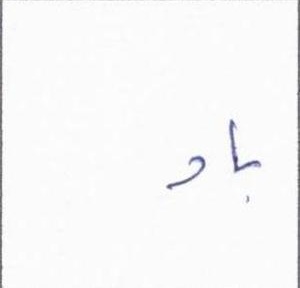 باد